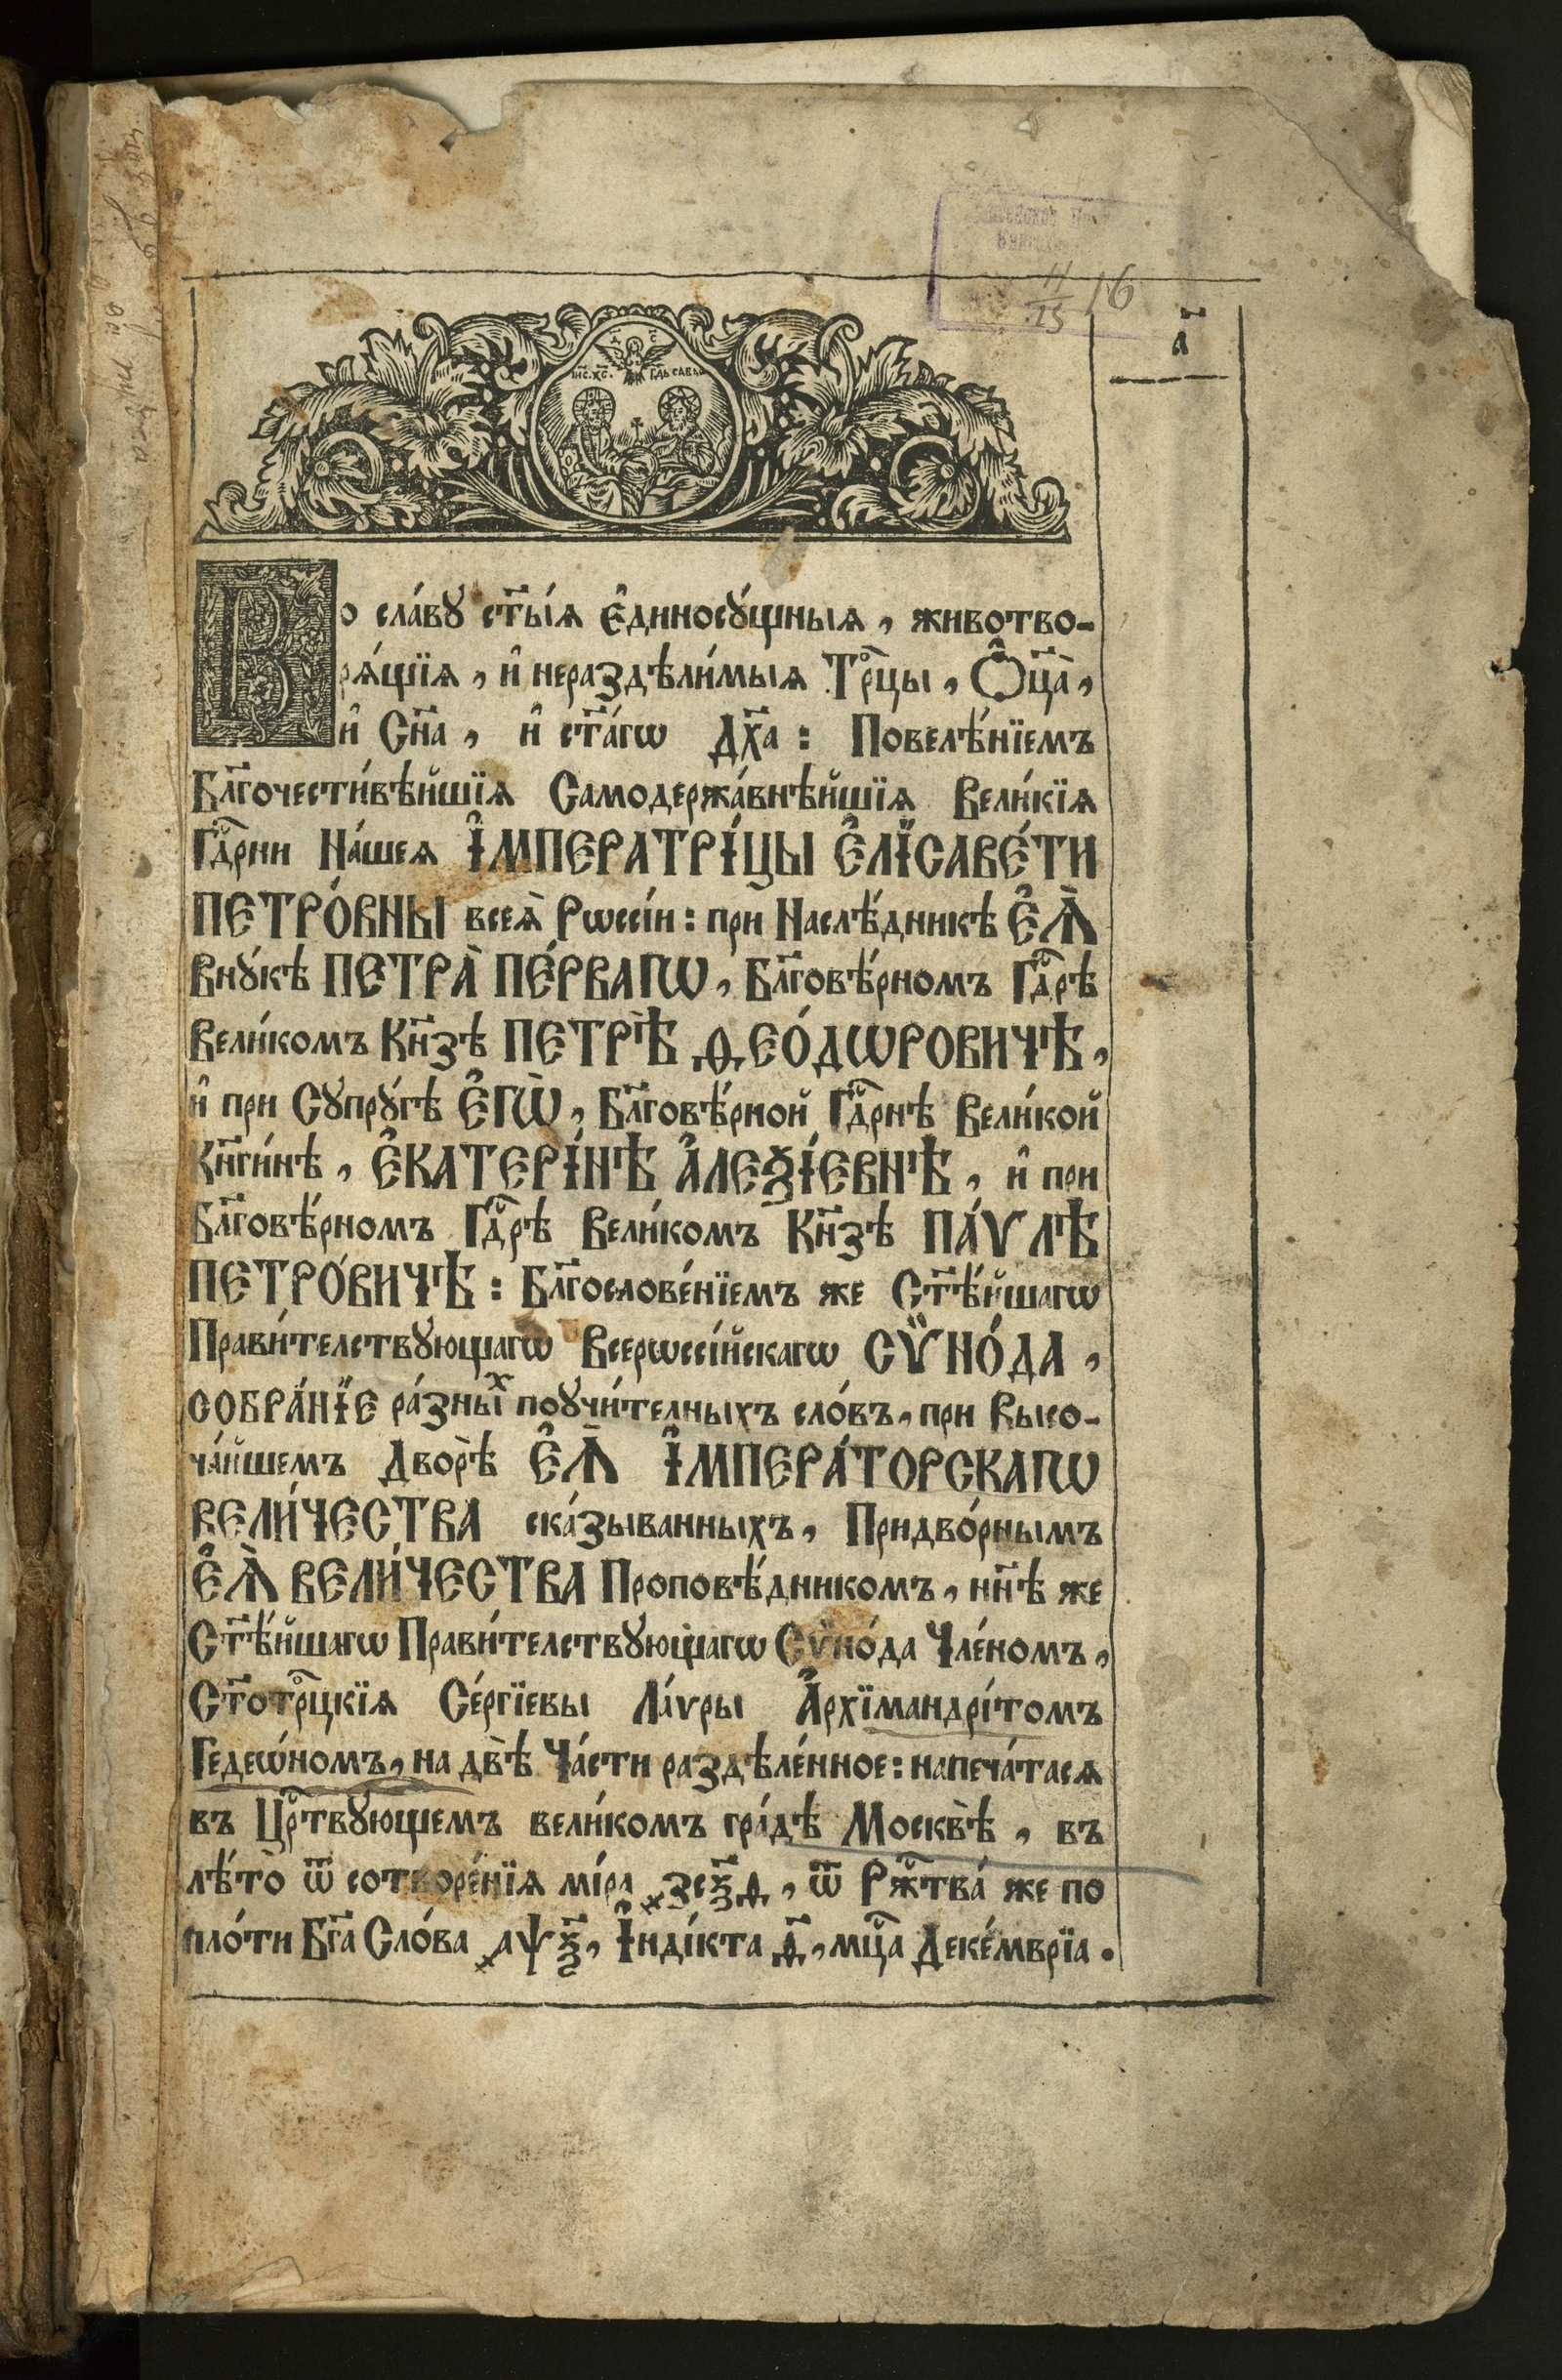 11/15 16
а҃
Во сла́вꙋ ст҃ы́ѧ є҆диносꙋ́щныѧ, животво-
рѧ́щїѧ, и҆ нераздѣли́мыѧ Трⷪ҇цы, Ѻ҆ц҃а̀,
и҆ Сн҃а, и҆ ст҃а́гѡ Дх҃а: Повелѣ́нїемъ
Бл҃гочести́вѣйшїѧ Самодержа́внѣйшїѧ Вели́кїѧ
Гдⷭ҇рни На́шеѧ І҆МПЕРАТРІ́ЦЫ Є҆ЛІСАВЕ́ТИ
ПЕТРО́ВНЫ всеѧ̀ Рѡссі́и: при Наслѣ́дникѣ Є҆Ѧ̀
Внꙋ́кѣ ПЕТРА̀ ПЕ́РВАГѠ, Бл҃говѣ́рномъ Гдⷭ҇рѣ
Вели́комъ Кн҃зѣ ПЕТРѢ̀ Ѳ̑ЕО́ДѠРОВИЧѢ,
и҆ при Сꙋпрꙋ́гѣ Є҆ГѠ̀, Бл҃говѣ́рной Гдⷭ҇рнѣ Вели́кой
Кн҃ги́нѣ, Є҆КАТЕРІ́НѢ А҆ЛЕѮІ́ЕВНѢ, и҆ при
Бл҃говѣ́рномъ Гдⷭ҇рѣ Вели́комъ Кн҃зѣ ПА́ѴЛѢ
ПЕТРО́ВИЧѢ: Бл҃гослове́нїемъ же Ст҃ѣ́йшагѡ
Прави́телствꙋющагѡ Всерѡссі́йскагѡ СѶНО́ДА,
СОБРА́НЇЕ ра́зныⷯ поꙋчи́телныхъ сло́въ, при Высо-
ча́йшемъ Дворѣ̀ Є҆Ѧ̀ І҆МПЕРА́ТОРСКАГѠ
ВЕЛИ́ЧЕСТВА ска́зыванныхъ, Придво́рнымъ
Є҆Ѧ̀ ВЕЛИ́ЧЕСТВА Проповѣ́дникомъ, нн҃ѣ же
Ст҃ѣ́йшагѡ Прави́телствꙋющагѡ Сѷно́да Чле́номъ,
Ст҃отрⷪ҇цкїѧ Се́ргїевы Ла́ѵры А҆рхїмандрі́томъ
Гедеѡ́номъ, на двѣ̀ Ча́сти раздѣле́нное: напеча́тасѧ
въ Црⷭ҇твꙋющемъ вели́комъ гра́дѣ Москвѣ̀, въ
лѣ́то ѿ сотворе́нїѧ мі́ра ҂зсѯ҃ѳ, ѿ Ржⷭ҇тва́ же по
пло́ти Бг҃а Сло́ва ҂аѱѯ҃, І҆ндікта ѳ҃, мцⷭ҇а Деке́мврїа.